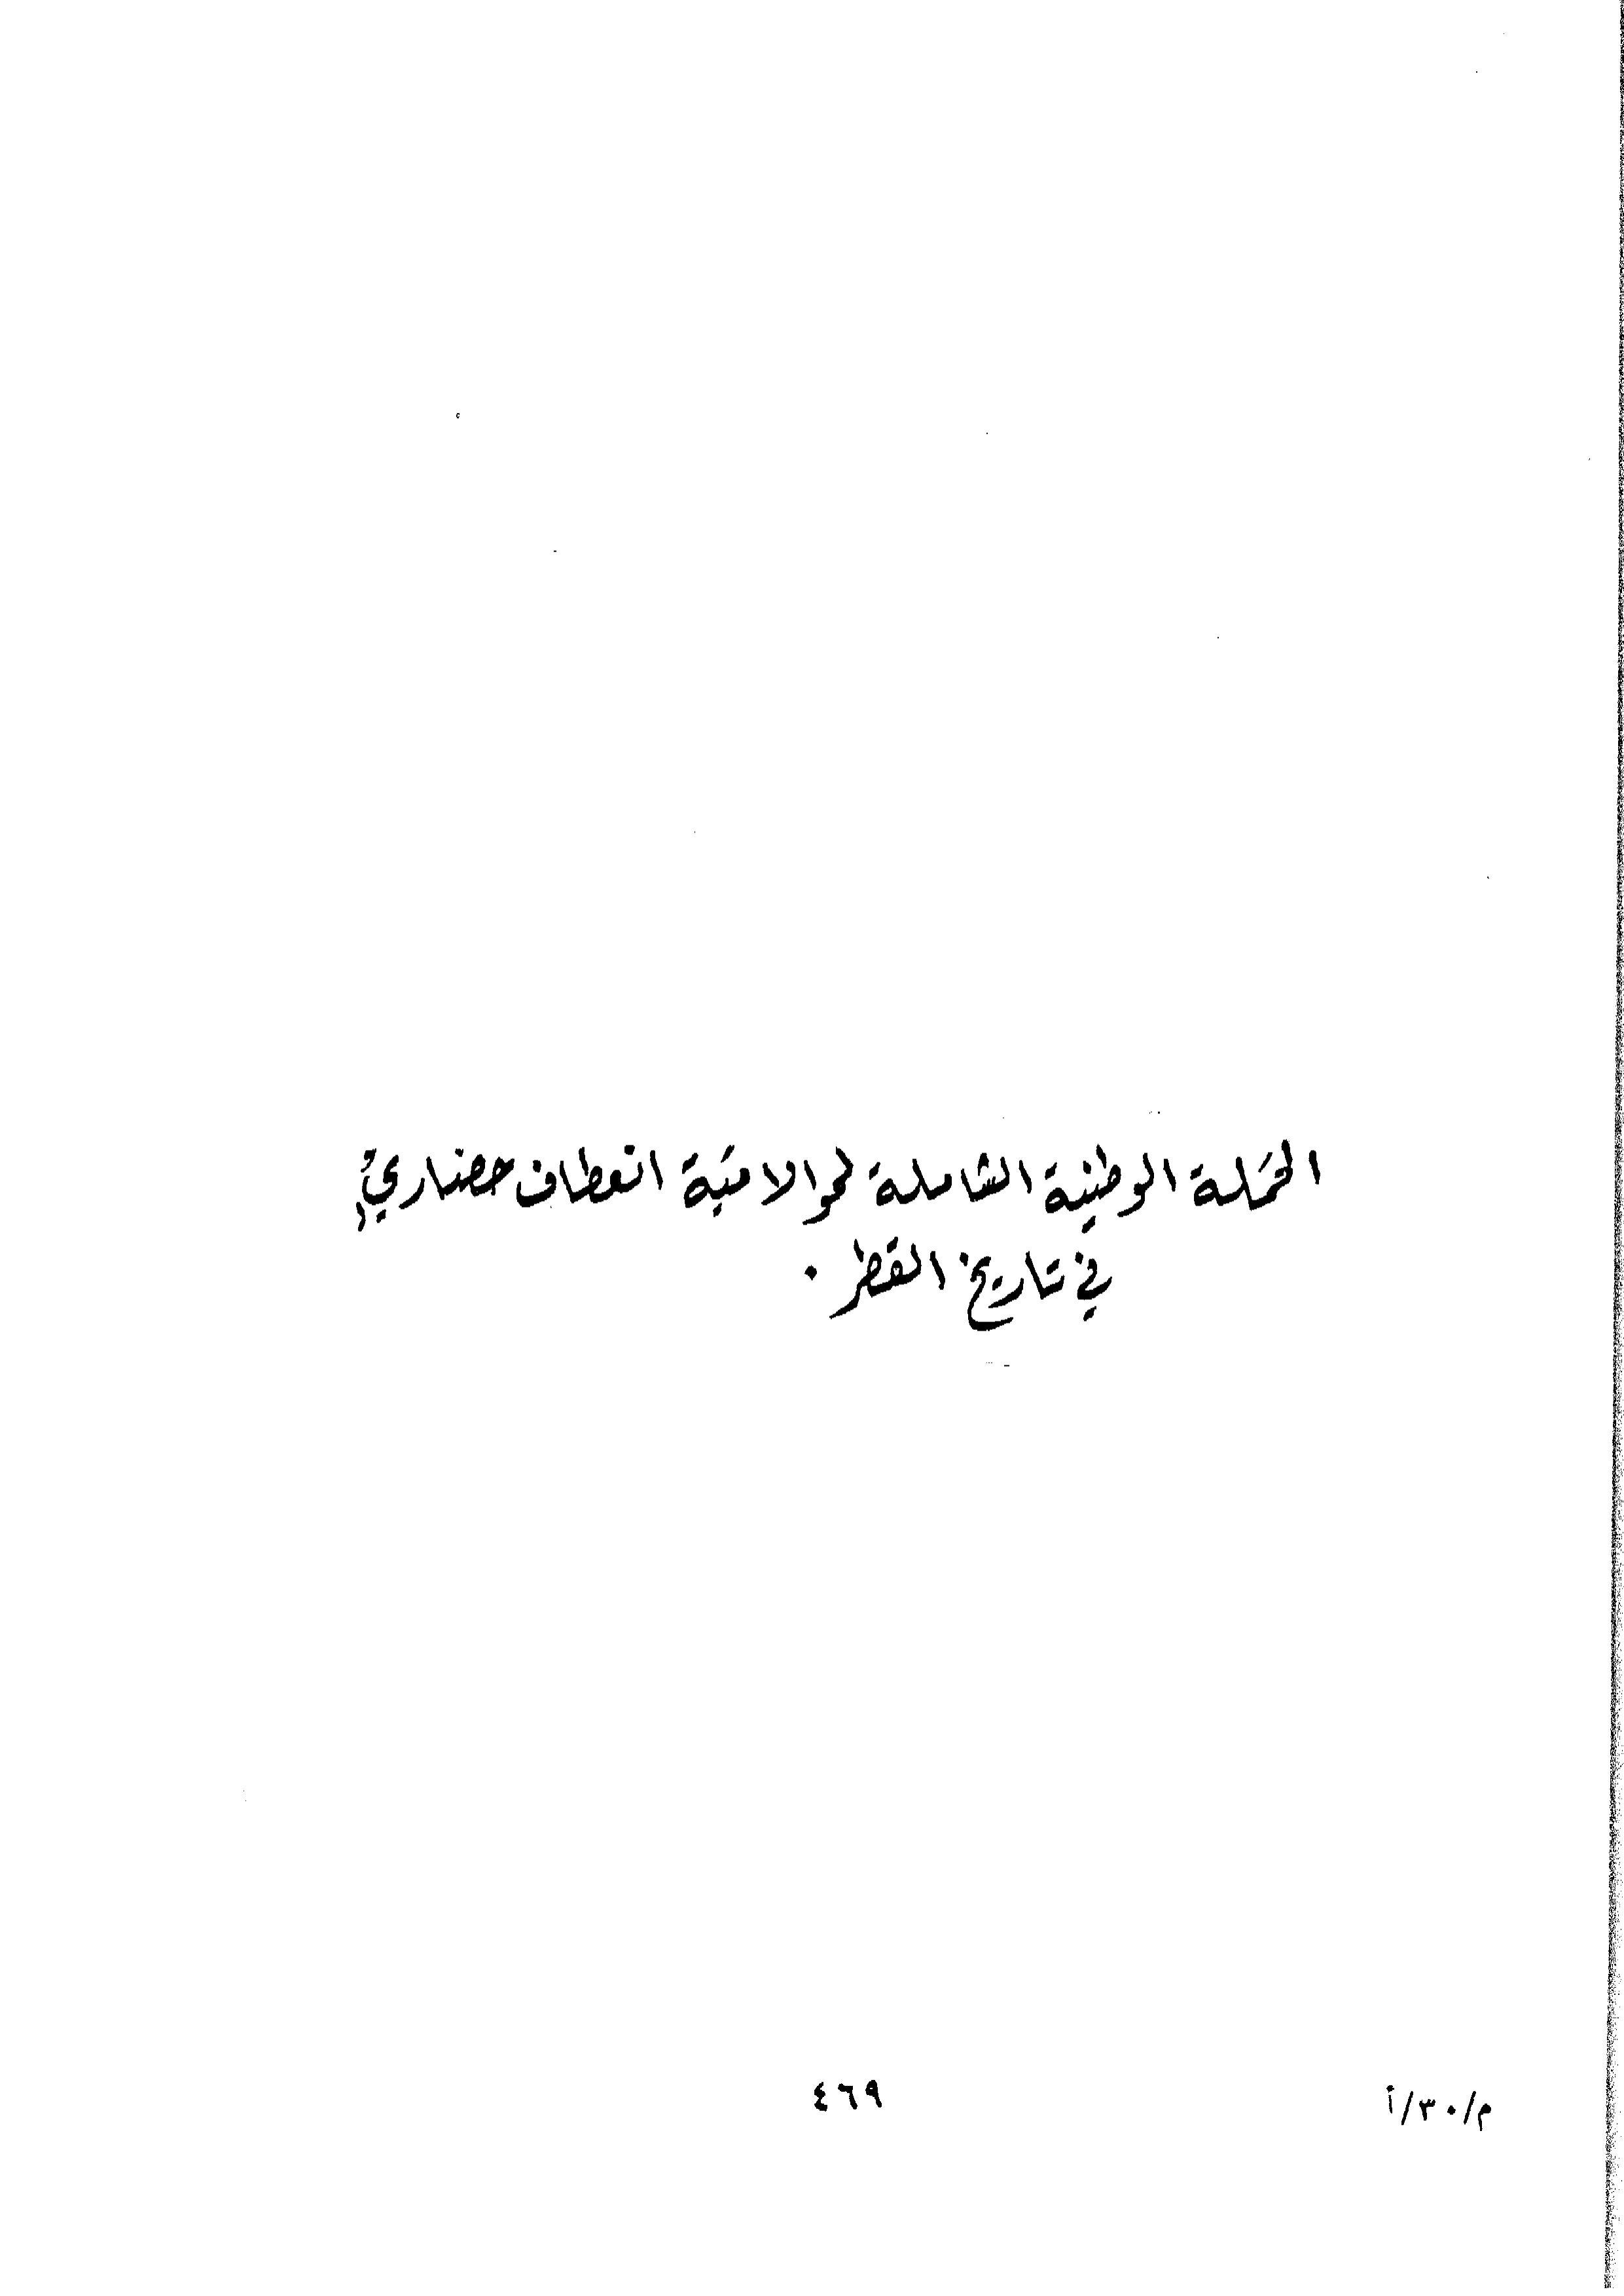 الحملة الوطنية الشاملة لمحو الامية انعطاف حضاري
في تاريخ القطر .
٤٦٩
م/٣٠/أ